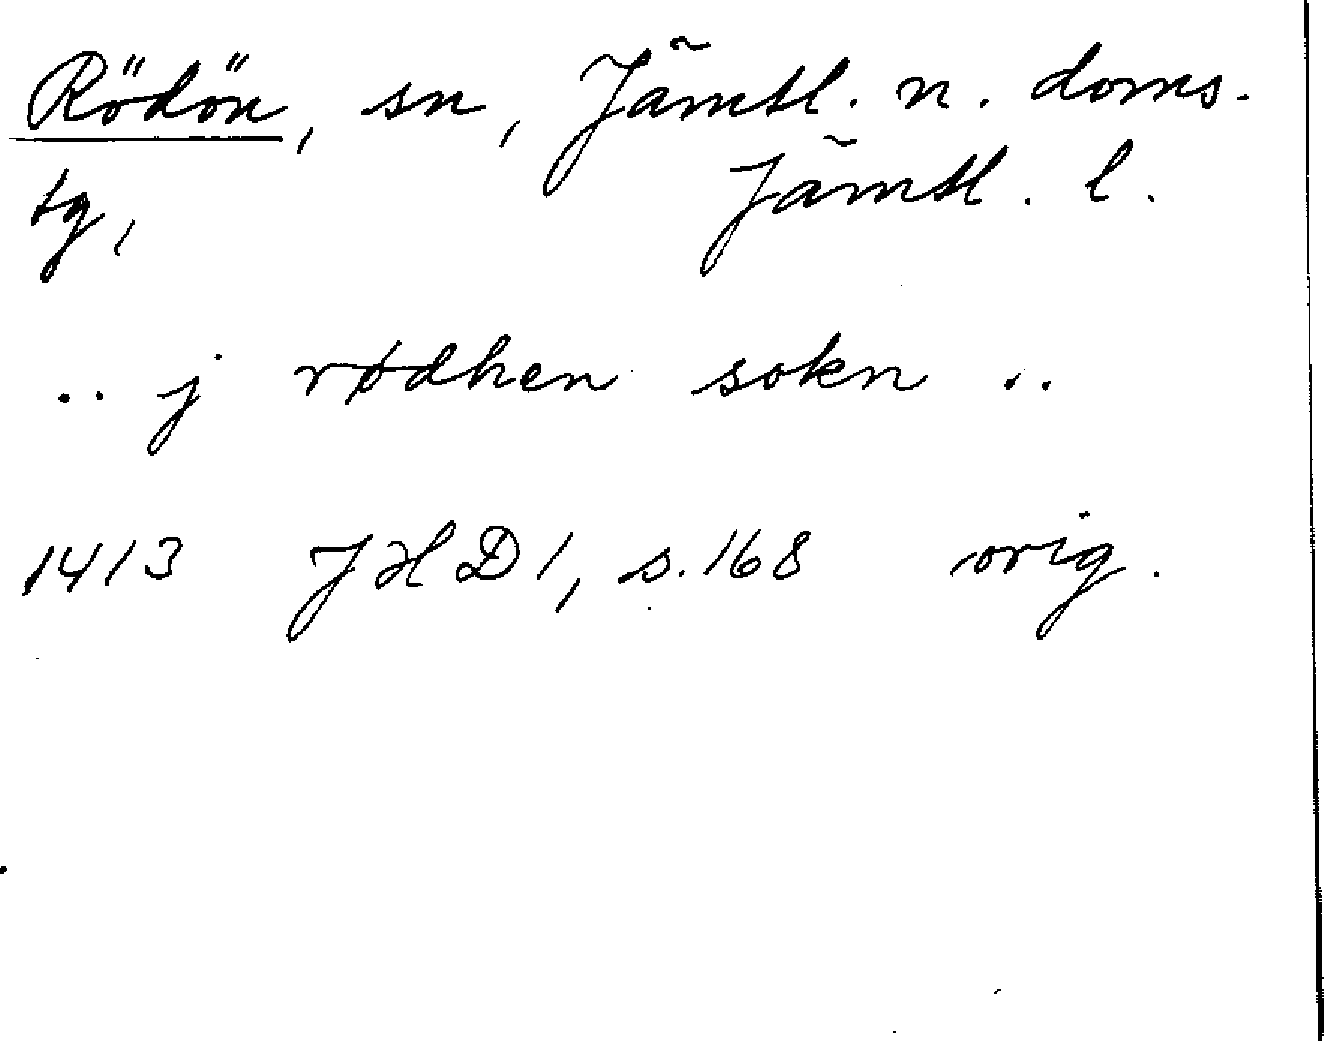 Rödön, sn, Jämtl. n. doms-
tg, Jämtl. l.
.. j rødhen sokn ..
1413 JHD 1, s. 168 orig.